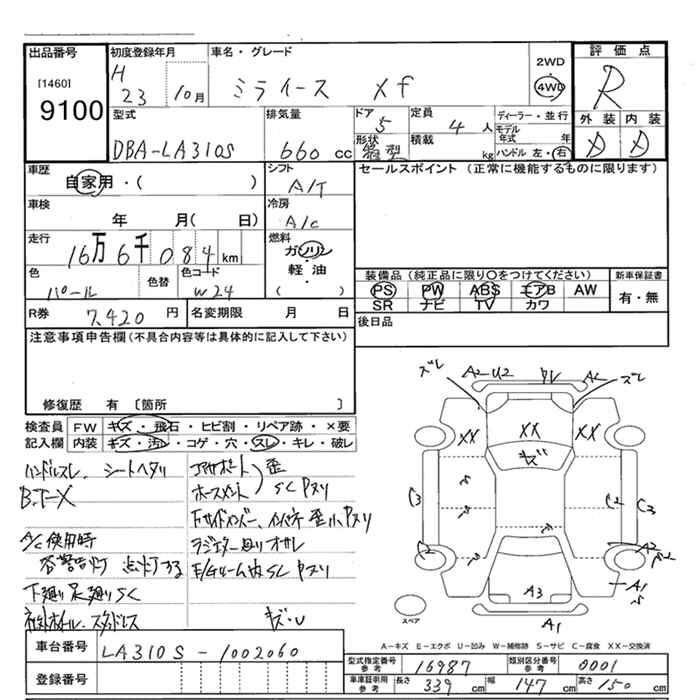 出品番号 初度登録年月 車名・グレード 2WD 評価点
[1460] H 4WD R
9100 23 10月 ミライース Xf
型式 排気量 ドア 5 定員 ディーラー・並行 外装 内装
DBA-LA310S 660 cc 4人 モデル年式 年 D D
形状 箱型 積載 kg ハンドル 左・右
車歴 シフト セールスポイント (正常に機能するものに限ります)
自家用・( ) A/T
車検 冷房
年 月( 日) A/C
走行 燃料
16万6千084km ガソリン
色 色替 色コード 軽・油 装備品 (純正品に限り○をつけてください) 新車保証書
パール W24 ( ) PS PW ABS エアB AW 有・無
SR ナビ TV カワ
R券 7,420円 名変期限 月 日 後日品
注意事項申告欄(不具合内容等は具体的に記入して下さい)
修復歴 有 〔箇所 〕
検査員 FW キズ・飛石・ヒビ割・リペア跡・×要
記入欄 内装 キズ・汚レ・コゲ・穴・スレ・キレ・破レ
ハンドルスレ、シートヘタリ コアサポート 歪
ホースメント SCPヌリ
A/C使用時
警告灯 点灯する ラジエター廻りオサレ
下廻り足廻りSC
キズ・U
ズレ A2-U2 ズレ
XX XX XX
キズ
C3 C2 C3
C2 A2
A3 A1
A1
スペア
A-キズ E-エクボ U-凹み W-補修跡 S-サビ C-腐食 XX-交換済
車台番号 LA310S-1002060
登録番号
型式指定番号 参考 16987 類別区分番号 参考 0001
車庫証明用 参考 長さ 339cm 幅 147cm 高さ 150cm